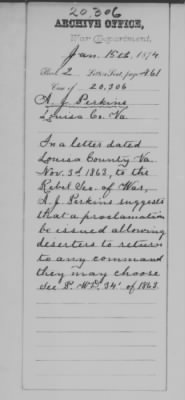 20,306
ARCHIVE OFFICE,
War Department,
Jan. 15th, 1874
Book 2 Letters Sent, page 461
Case of 20,306
A. J. Perkins
Louisa Co. Va
In a letter dated
Louisa County Va
Nov. 3d 1863, to the
Rebel Sec. of War,
A. J. Perkins suggests
that a proclamation
be issued allowing
deserters to return
to any command
they may choose
See P. W.D. 34' of 1863.